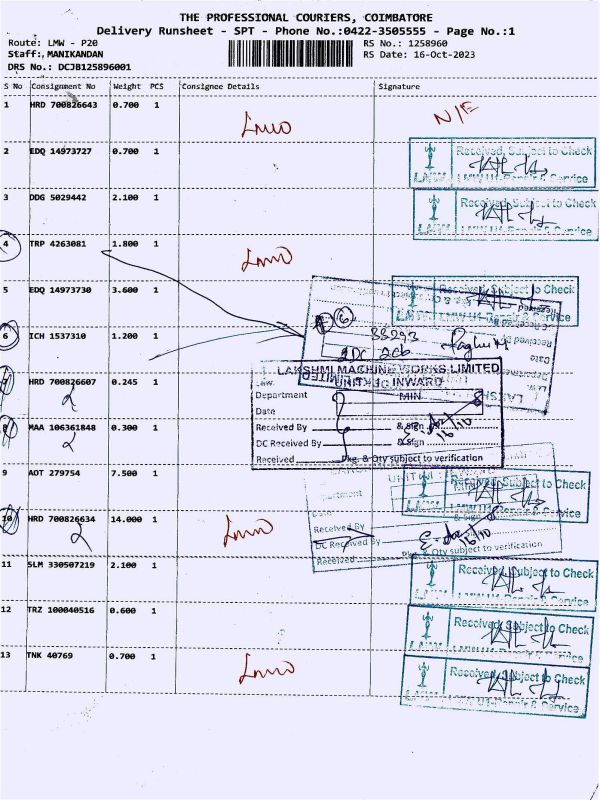 THE PROFESSIONAL COURIERS, COIMBATORE
Delivery Runsheet - SPT - Phone No.:0422-3505555 - Page No.:1
Route: LMW - P20
RS No.: 1258960
Staff: MANIKANDAN
RS Date: 16-Oct-2023
DRS No.: DCJB125896001
S No Consignment No Weight PCS Consignee Details Signature
1 HRD 700826643 0.700 1
N/E
2 EDQ 14973727 0.700 1
Received, Subject to Check
LMW LMW U1-Repair & Service
3 DDG 5029442 2.100 1
Received, Subject to Check
LMW U1-Repair & Service
4 TRP 4263081 1.800 1
5 EDQ 14973730 3.600 1
Received, Subject to Check
LMW U1-Repair & Service
6 ICH 1537310 1.200 1
38293
LAKSHMI MACHINE WORKS LIMITED
UNIT-1: INWARD
7 HRD 700826607 0.245 1
Department MIN
Date
8 MAA 106361848 0.300 1
Received By & Sign 16/10
DC Received By & Sign
Received Pkg. & Qty subject to verification
9 ADT 279754 7.500 1
Received, Subject to Check
LMW U1-Repair & Service
10 HRD 700826634 14.000 1
Received By
DC Received By 16/10
Received Pkg. & Qty subject to verification
11 SLM 330507219 2.100 1
Received, Subject to Check
LMW U1-Repair & Service
12 TRZ 100040516 0.600 1
Received, Subject to Check
LMW U1-Repair & Service
13 TNK 40769 0.700 1
Received, Subject to Check
LMW LMW U1-Repair & Service